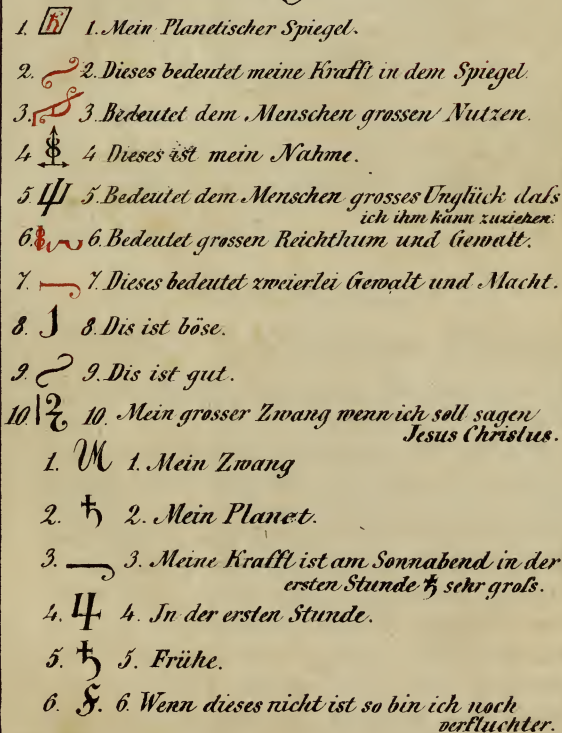 1. ♄ 1. Mein Planetischer Spiegel.
2. 2. Dieses bedeutet meine Krafft in dem Spiegel
3. 3. Bedeutet dem Menschen grossen Nutzen.
4 4 Dieses ist mein Nahme.
5. 5. Bedeutet dem Menschen grosses Unglück daſs
ich ihm kann zuziehen.
6. 6. Bedeutet grossen Reichthum und Gewalt.
7. 7. Dieses bedeutet zweierlei Gewalt und Macht.
8. 8. Dis ist böse.
9. 9. Dis ist gut.
10. 10. Mein grosser Zwang wenn ich soll sagen
Jesus Christus.
1. 1. Mein Zwang
2. ♄ 2. Mein Planet.
3. 3. Meine Krafft ist am Sonnabend in der
ersten Stunde ♄ sehr groſs.
4. ♃ 4. In der ersten Stunde.
5. ♄ 5. Frühe.
6. 6. Wenn dieses nicht ist so bin ich noch
verfluchter.